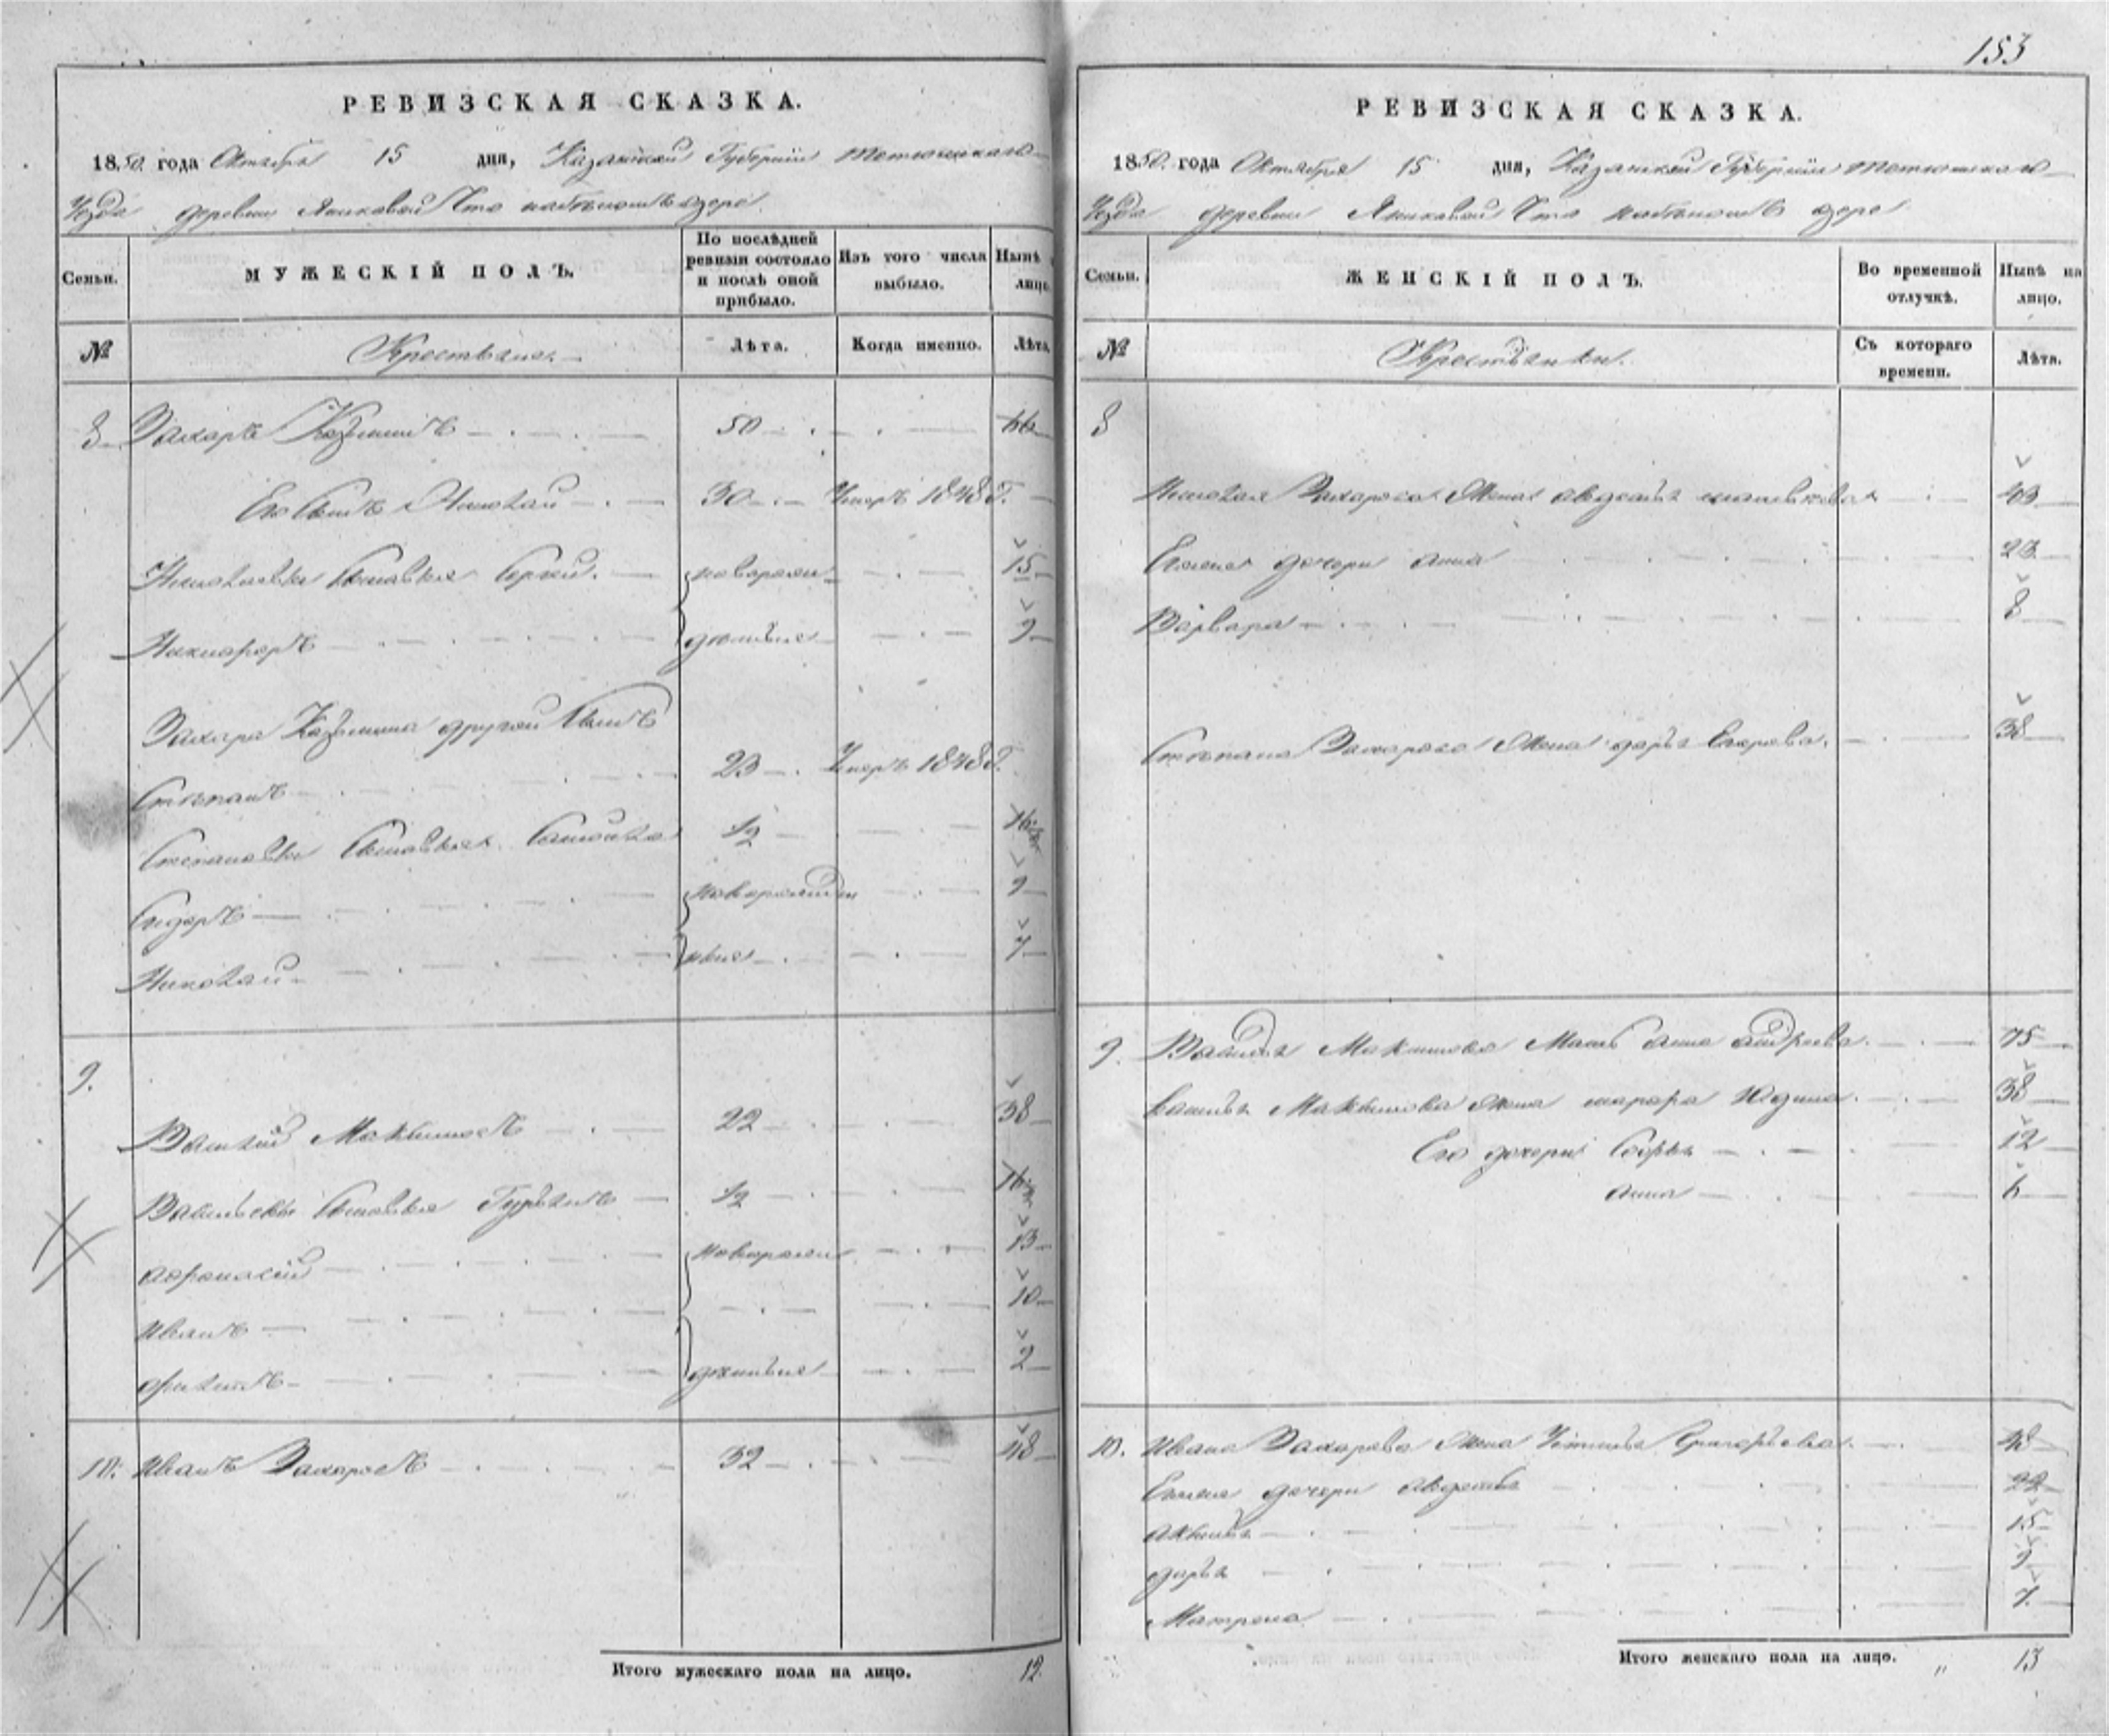 153
РЕВИЗСКАЯ СКАЗКА.
1850. года Октября 15 дня, Казанской Губернии Тетюшскаго
Уезда деревни Аниковой Что
По послѣдней ревизіи состояло и послѣ оной прибыло.
Изъ того числа выбыло.
Нынѣ лицо.
Семьи.
МУЖЕСКІЙ ПОЛЪ.
№
Крестьяне.
Лѣта.
Когда именно.
Лѣта.
8 Захаръ Козьминъ 50 66
Его Сынъ Николай 30 Умеръ 1848 г.
Николаевы Сыновья Сергей. новорожденные 15
Никифоръ 9
Захара Козьмина другой Сынъ
Степанъ 23 Умеръ 1848 г.
Степановы Сыновья 1/2 16 1/2
Сидоръ новорожденные 9
Николай 7
9.
Василий Максимовъ 22 38
Васильевы Сыновья Гурьянъ 1/2 16 1/2
Афонасий новорожденные 13
Иванъ 10
Филипъ 2
10. Иванъ Захаровъ 32 48
Итого мужескаго пола на лицо. 12
РЕВИЗСКАЯ СКАЗКА.
1850. года Октября 15 дня, Казанской Губернии Тетюшскаго
Уезда деревни Аниковой Что
Семьи.
ЖЕНСКІЙ ПОЛЪ.
Во временной отлучкѣ.
Нынѣ на лицо.
№
Крестьянки.
Съ котораго времени.
Лѣта.
8
Николая Захарова Жена Авдотья 43
Егоже дочери Анна 23
Варвара 8
Степана Захарова Жена Дарья Егорова. 38
9. Василья Максимова Мать Анна Андреева. 75
Василья Максимова Жена Марфа Юдина. 38
Его дочери Софья 12
Анна 6
10. Ивана Захарова Жена Устинья Григорьева. 48
Егоже дочери Авдотья 22
Аксинья 15
Дарья 9
Матрена 7
Итого женскаго пола на лицо. „ 13